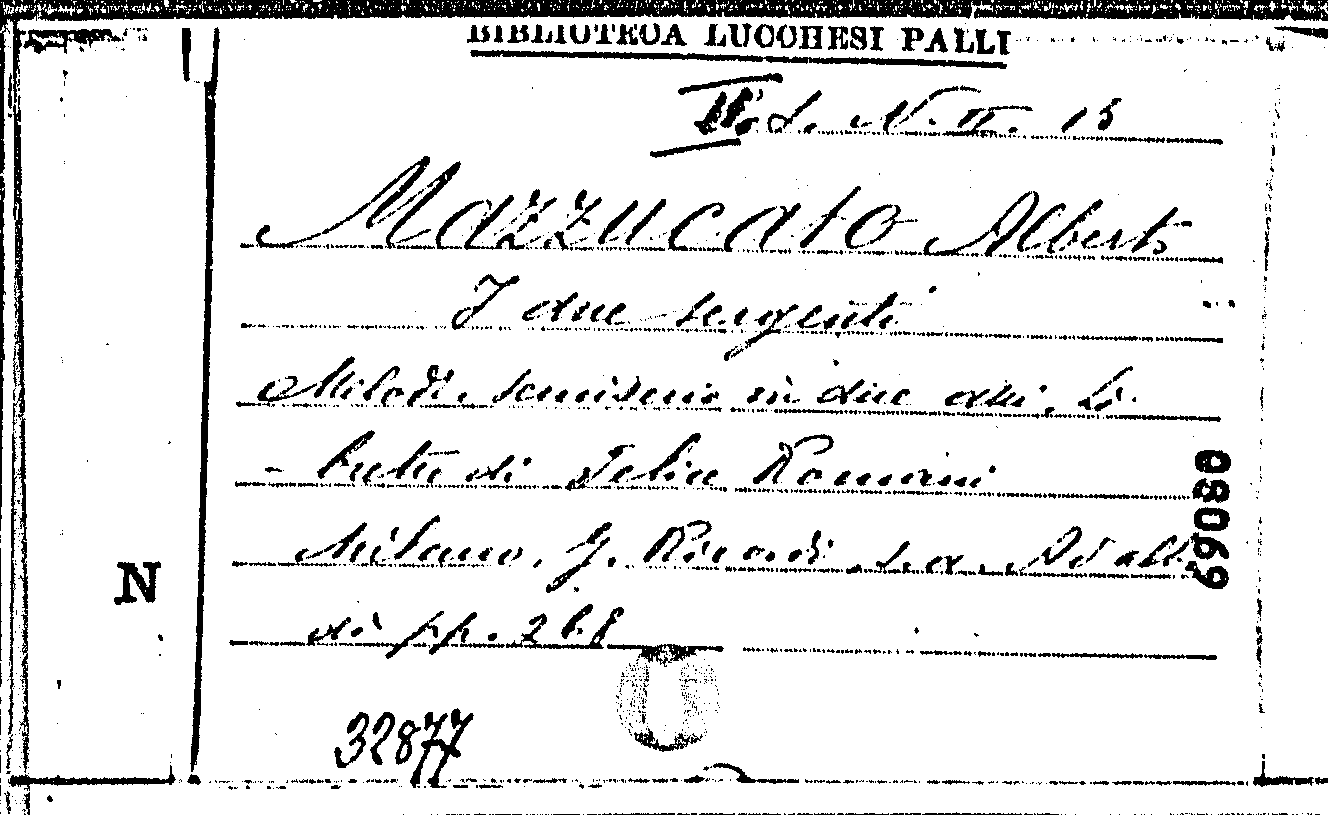 BIBLIOTECA LUCCHESI PALLI
N. II. 15
Mazzucato Alberto
I due sergenti
Melodr. semiserio in due atti. Li-
- bretto di Felice Romani
Milano, G. Ricordi s. a. In alb.
di pp. 268
N
69080
32877